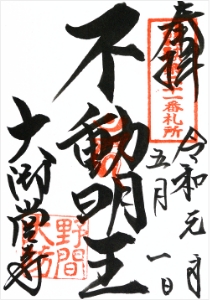 奉拝
令和元年
五月一日
不動明王
大御堂寺
野間
大坊